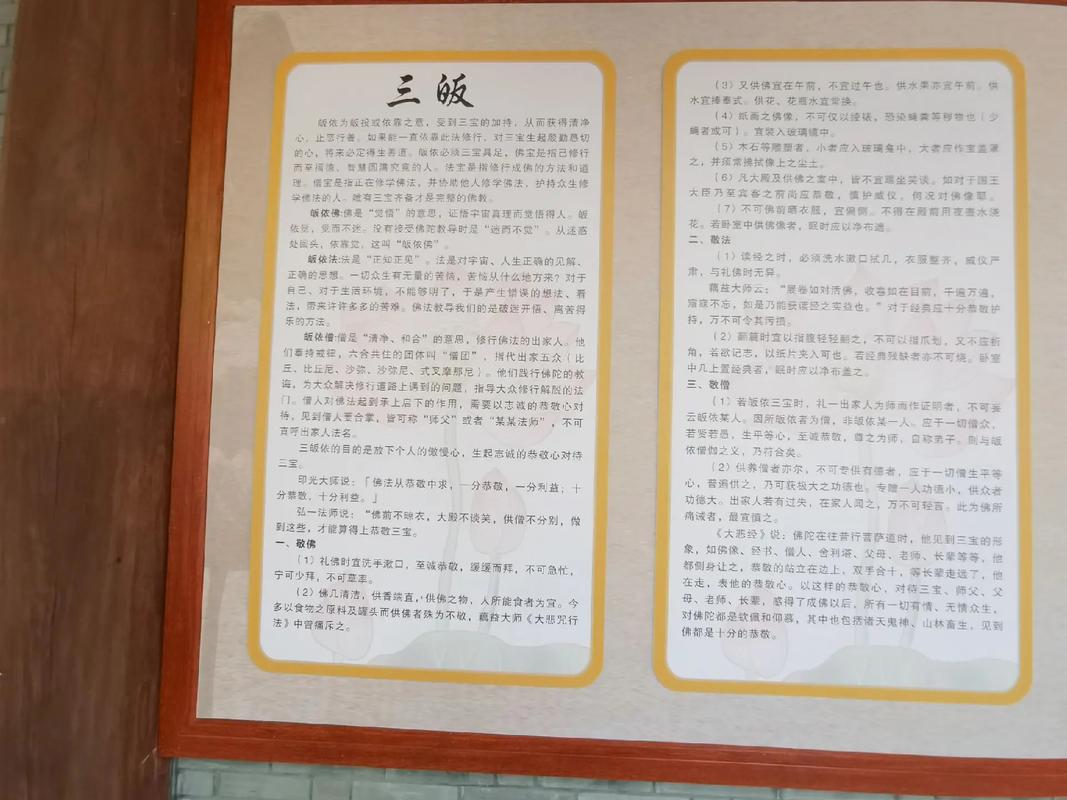 三皈
皈依为皈投或依靠之意，受到三宝的加持，从而获得清净
心，止恶行善。如果能一直依靠此法修行，对三宝生起殷勤恳切
的心，将来必定得生善道。皈依必须三宝具足，佛宝是指已修行
而至福德、智慧圆满究竟的人。法宝是指修行成佛的方法和道
理。僧宝是指正在修学佛法，并协助他人修学佛法，护持众生修
学佛法的人。唯有三宝齐备才是完整的佛教。
皈依佛:佛是“觉悟”的意思，证悟宇宙真理而觉悟得人。皈
依觉，觉而不迷。没有接受佛陀教导时是“迷而不觉”。从迷惑
处回头，依靠觉，这叫“皈依佛”。
皈依法:法是“正知正见”。法是对宇宙、人生正确的见解、
正确的思想。一切众生有无量的苦恼，苦恼从什么地方来？对于
自己、对于生活环境，不能够明了，于是产生错误的想法、看
法，带来许许多多的苦难。佛法教导我们的是破迷开悟、离苦得
乐的方法。
皈依僧:僧是“清净、和合”的意思，修行佛法的出家人。他
们奉持戒律，六合共住的团体叫“僧团”，指代出家五众（比
丘、比丘尼、沙弥、沙弥尼、式叉摩那尼）。他们践行佛陀的教
诲，为大众解决修行道路上遇到的问题，指导大众修行解脱的法
门。僧人对佛法起到承上启下的作用，需要以志诚的恭敬心对
待，见到僧人要合掌，皆可称“师父”或者“某某法师”，不可
直呼出家人法名。
三皈依的目的是放下个人的傲慢心，生起志诚的恭敬心对待
三宝。
印光大师说：「佛法从恭敬中求，一分恭敬，一分利益；十
分恭敬，十分利益。」
弘一法师说：“佛前不晾衣，大殿不谈笑，供僧不分别，做
到这些，才能算得上恭敬三宝。
一、敬佛
（1）礼佛时宜洗手漱口，至诚恭敬，缓缓而拜，不可急忙，
宁可少拜，不可草率。
（2）佛几清洁，供香端直，供佛之物，人所能食者为宜。今
多以食物之原料及罐头而供佛者殊为不敬，藕益大师《大悲咒行
法》中曾痛斥之。
（3）又供佛宜在午前，不宜过午也。供水果亦宜午前。供
水宜捧奉式。供花、花瓶水宜常换。
（4）纸画之佛像，不可仅以绫裱，恐染蝇粪等秽物也（少
蝇者或可）。宜装入玻璃镜中。
（5）木石等雕塑者，小者应入玻璃龛中，大者应作宝盖罩
之，并须常换拭像上之尘土。
（6）凡大殿及供佛之室中，皆不宜踞坐笑谈。如对于国王
大臣乃至宾客之前尚应恭敬，慎护威仪。何况对佛像耶。
（7）不可佛前晒衣服，宜偏侧。不得在殿前用夜壶水浇
花。若卧室中供佛像者，眠时应以净布遮。
二、敬法
（1）读经之时，必须洗水漱口拭几，衣服整齐，威仪严
肃，与礼佛时无异。
藕益大师云：“展卷如对活佛，收卷如在目前，千遍万遍，
寤寐不忘，如是乃能获读经之实益也。”对于经典应十分恭敬护
持，万不可令其污损。
（2）翻篇时宜以指腹轻轻翻之，不可以指爪划，又不应折
角，若欲记志，以纸片夹入可也。若经典残缺者亦不可烧。卧室
中几上置经典者，眠时应以净布盖之。
三、敬僧
（1）若皈依三宝时，礼一出家人为师而作证明者，不可妄
云皈依某人。因所皈依者为僧，非皈依某一人。应于一切僧众，
若贤若愚，生平等心，至诚恭敬，尊之为师，自称弟子。则与皈
依僧伽之义，乃符合矣。
（2）供养僧者亦尔，不可专供有德者，应于一切僧生平等
心，普遍供之，乃可获极大之功德也。专赠一人功德小，供众者
功德大。出家人若有过失，在家人闻之，万不可轻言。此为佛所
痛诫者，最宜慎之。
《大悲经》说：佛陀在往昔行菩萨道时，他见到三宝的形
象，如佛像、经书、僧人、舍利塔、父母、老师、长辈等等，他
都侧身让之，恭敬的站立在边上，双手合十，等长辈走远了，他
在走，表他的恭敬心。以这样的恭敬心，对待三宝、师父、父
母、老师、长辈，感得了成佛以后，所有一切有情、无情众生，
对佛陀都是钦佩和仰慕，其中也包括诸天鬼神、山林畜生，见到
佛都是十分的恭敬。